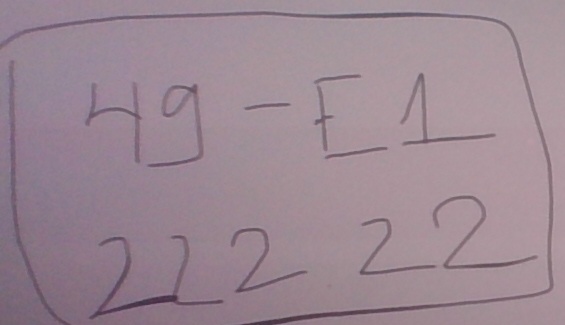 49-E1
222 22